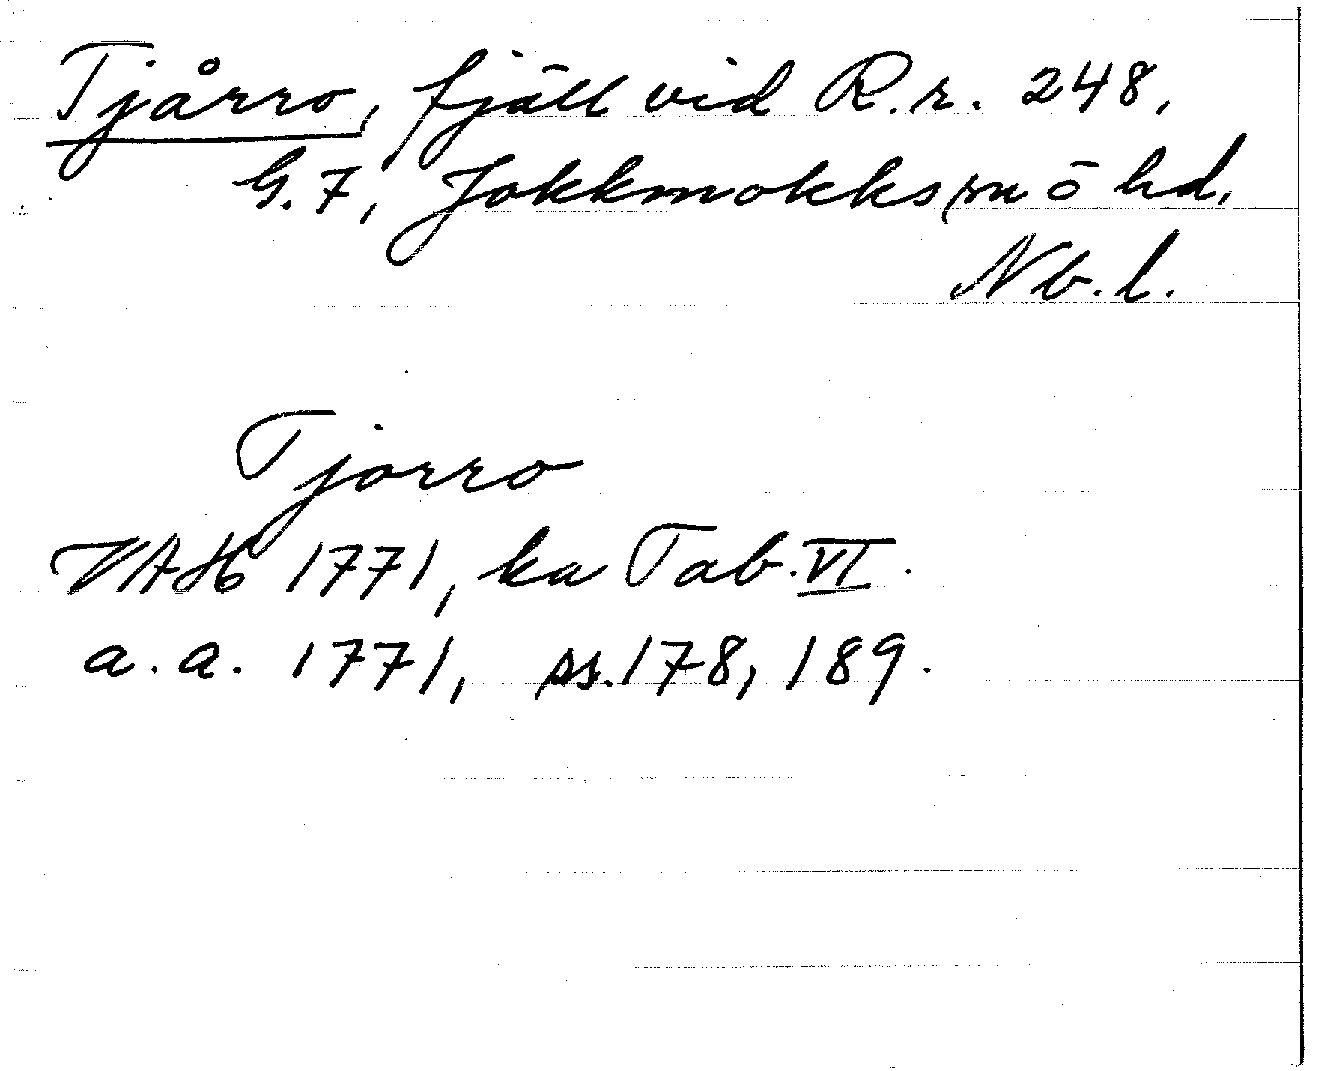 Tjårro, fjäll vid R.r. 248,
G.7, Jokkmokks sn o hd.
Nb.l.
Tjorro
VAH 1771, ka Tab. VI.
a.a. 1771, ss. 178, 189.